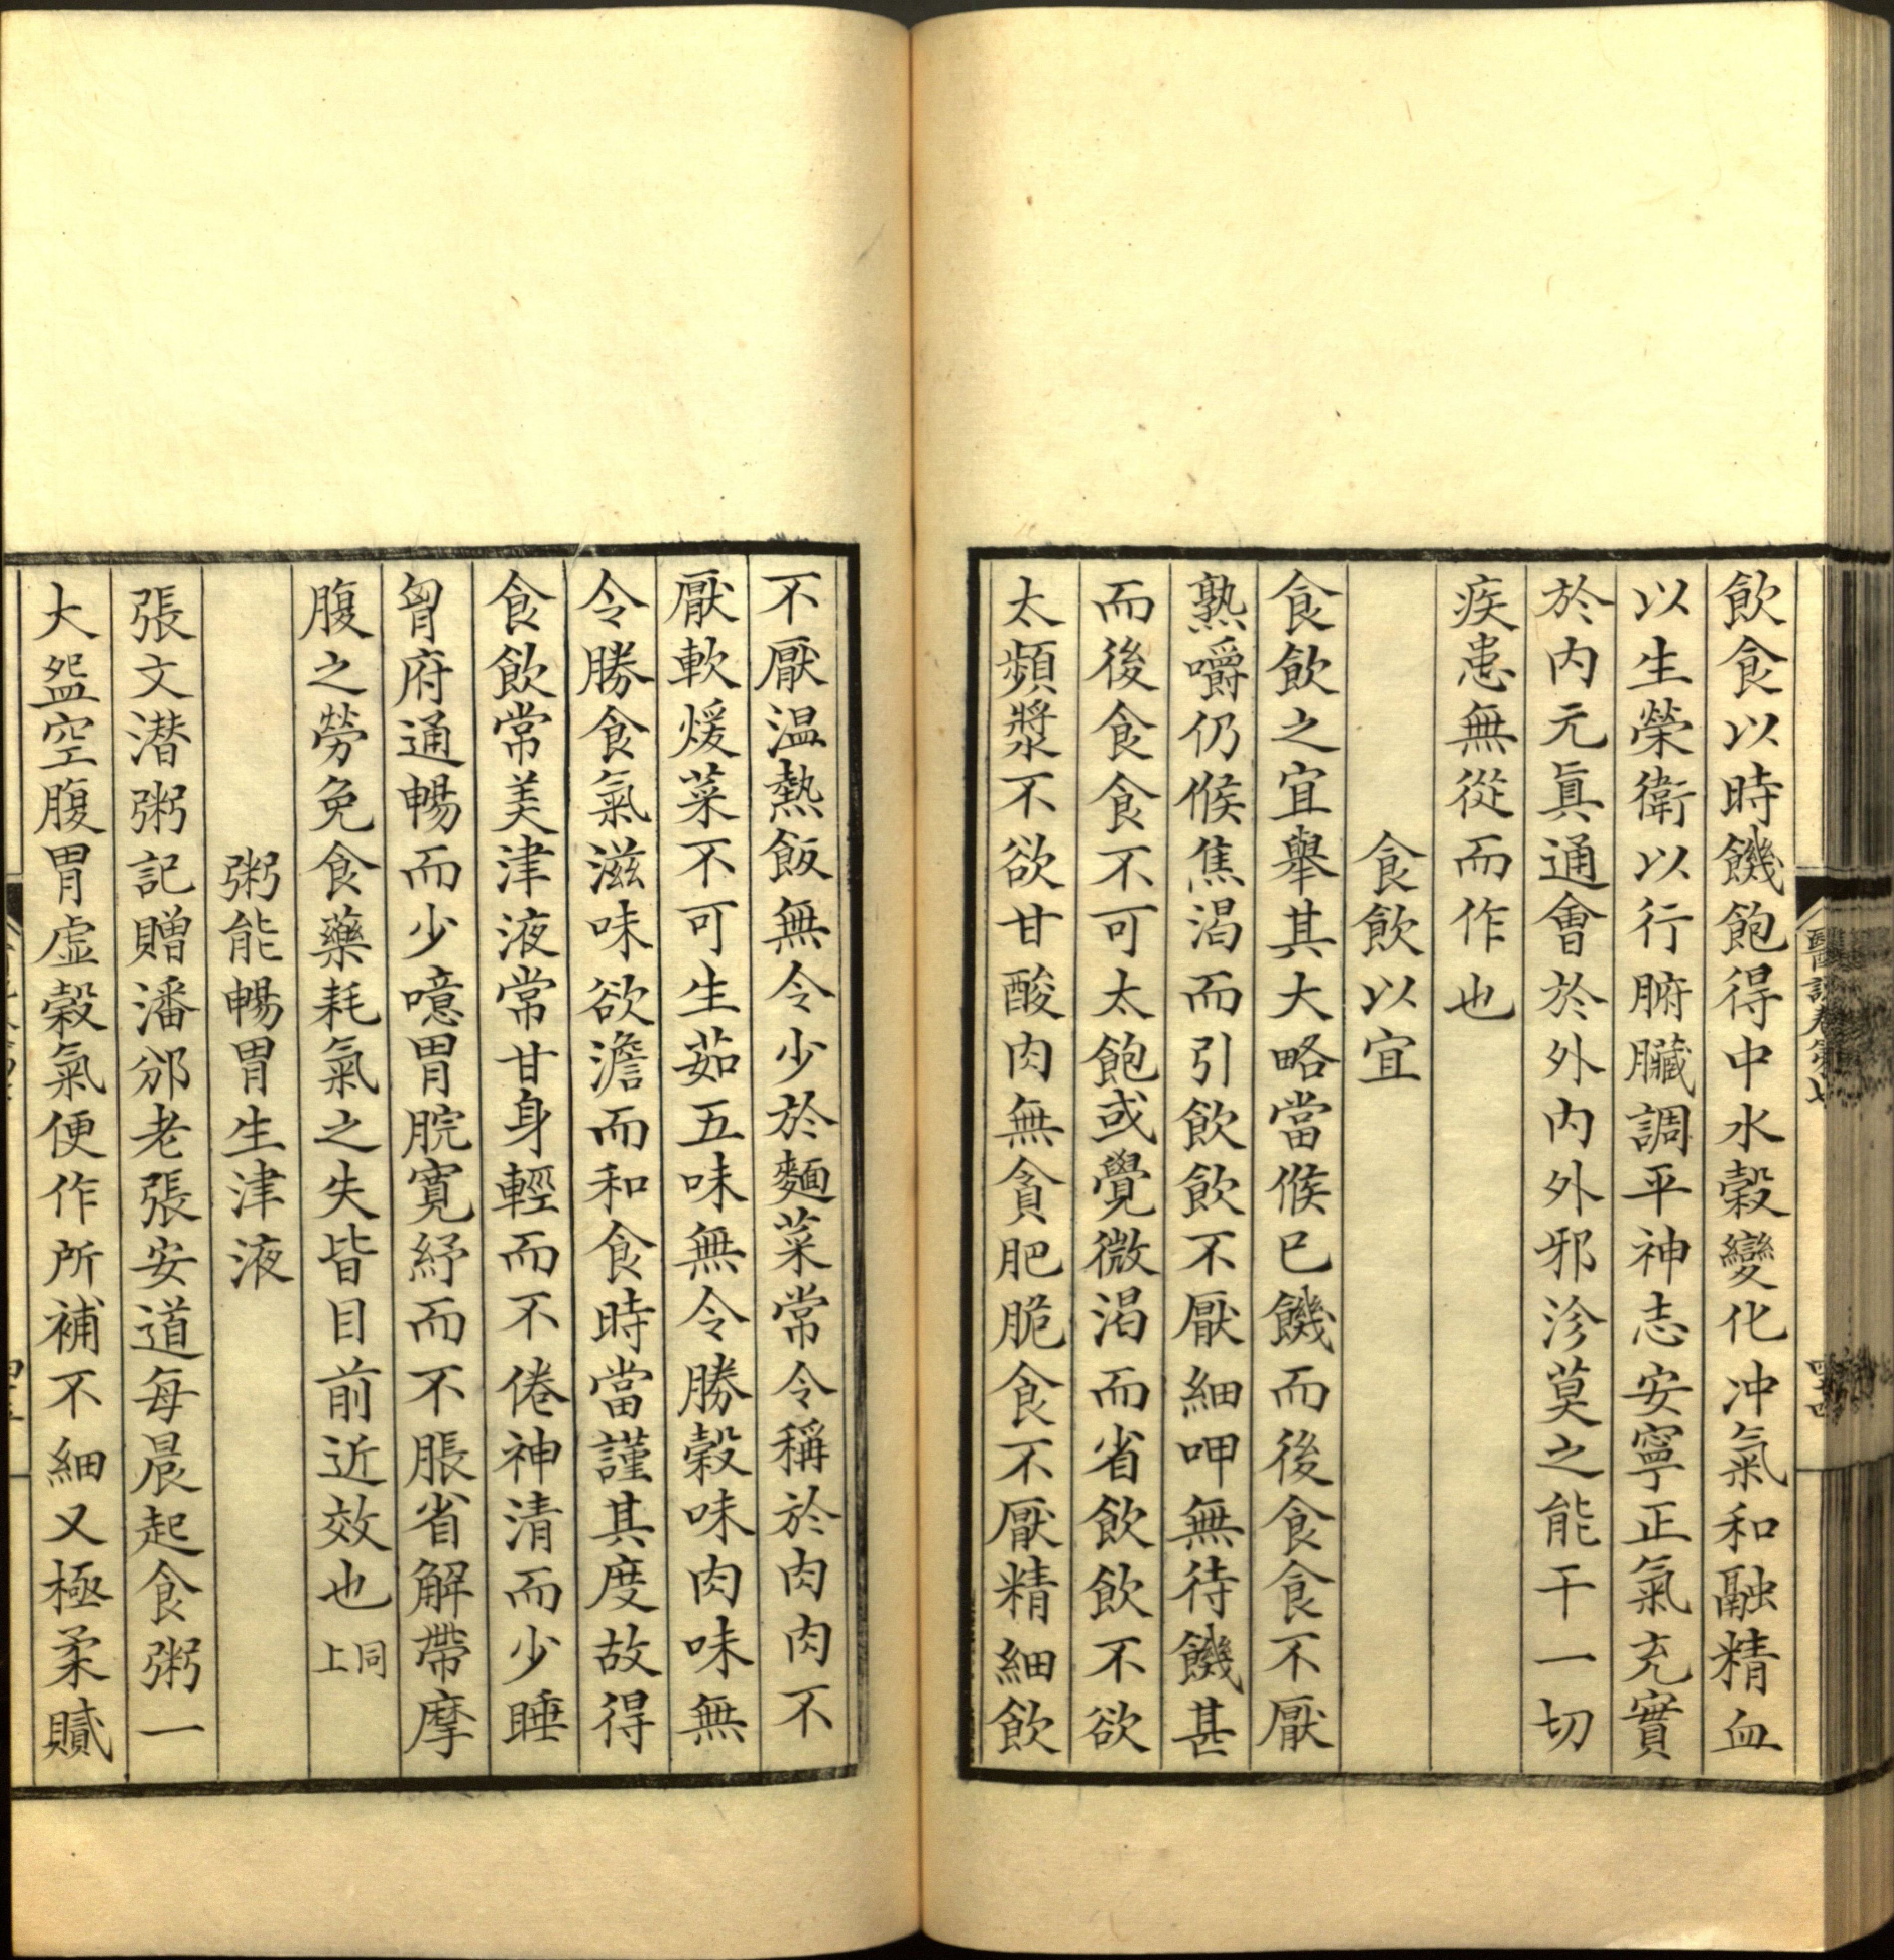 飲食以時饑飽得中水穀變化冲氣和融精血
以生榮衛以行腑臟調平神志安寧正氣充實
於内元眞通會於外内外邪沴莫之能干一切
疾患無從而作也
食飲以宜
食飲之宜舉其大略當候已饑而後食食不厭
熟嚼仍候焦渴而引飲飲不厭細呷無待饑甚
而後食食不可太飽或覺微渴而省飲飲不欲
太頻漿不欲甘酸肉無貪肥脆食不厭精細飲
不厭温熱飯無令少於麵菜常令稱於肉肉不
厭軟煖菜不可生茹五味無令勝穀味肉味無
令勝食氣滋味欲澹而和食時當謹其度故得
食飲常美津液常甘身輕而不倦神清而少睡
胷府通暢而少噫胃脘寛紓而不脹省解帶摩
腹之勞免食藥耗氣之失皆目前近效也同上
粥能暢胃生津液
張文潛粥記贈潘邠老張安道每晨起食粥一
大盌空腹胃虚穀氣便作所補不細又極柔膩
醫說卷第七
四十四